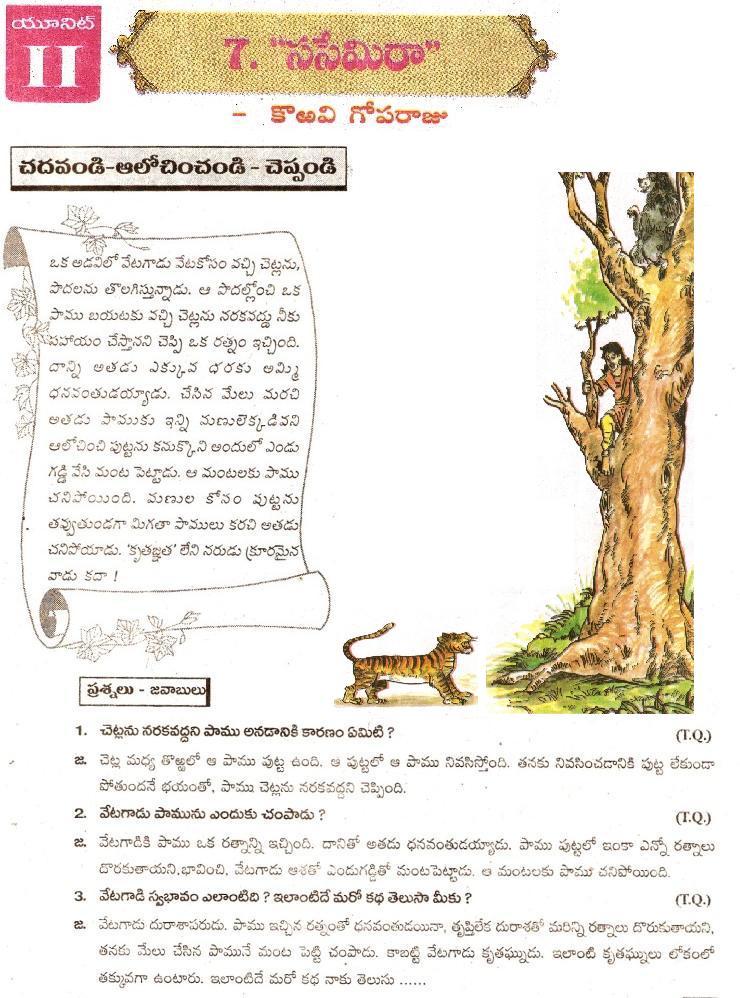 యూనిట్
II
7. "ససేమిరా"
- కొఱవి గోపరాజు
చదవండి-ఆలోచించండి - చెప్పండి
ఒక అడవిలో వేటగాడు వేటకోసం వచ్చి చెట్లను,
పొదలను తొలగిస్తున్నాడు. ఆ పొదల్లోంచి ఒక
పాము బయటకు వచ్చి చెట్లను నరకవద్దు నీకు
సహాయం చేస్తానని చెప్పి ఒక రత్నం ఇచ్చింది.
దాన్ని అతడు ఎక్కువ ధరకు అమ్మి
ధనవంతుడయ్యాడు. చేసిన మేలు మరచి
అతడు పాముకు ఇన్ని మణులెక్కడివని
ఆలోచించి పుట్టను కనుక్కొని అందులో ఎండు
గడ్డి వేసి మంట పెట్టాడు. ఆ మంటలకు పాము
చనిపోయింది. మణుల కోసం పుట్టను
తవ్వుతుండగా మిగతా పాములు కరచి అతడు
చనిపోయాడు. 'కృతజ్ఞత' లేని నరుడు క్రూరమైన
వాడు కదా !
ప్రశ్నలు - జవాబులు
1. చెట్లను నరకవద్దని పాము అనడానికి కారణం ఏమిటి ? (T.Q.)
జ. చెట్ల మధ్య తొఱ్ఱలో ఆ పాము పుట్ట ఉంది. ఆ పుట్టలో ఆ పాము నివసిస్తోంది. తనకు నివసించడానికి పుట్ట లేకుండా
పోతుందనే భయంతో, పాము చెట్లను నరకవద్దని చెప్పింది.
2. వేటగాడు పామును ఎందుకు చంపాడు ? (T.Q.)
జ. వేటగాడికి పాము ఒక రత్నాన్ని ఇచ్చింది. దానితో అతడు ధనవంతుడయ్యాడు. పాము పుట్టలో ఇంకా ఎన్నో రత్నాలు
దొరకుతాయని,భావించి, వేటగాడు ఆశతో ఎండుగడ్డితో మంటపెట్టాడు. ఆ మంటలకు పాము చనిపోయింది.
3. వేటగాడి స్వభావం ఎలాంటిది ? ఇలాంటిదే మరో కథ తెలుసా మీకు ? (T.Q.)
జ. వేటగాడు దురాశాపరుడు. పాము ఇచ్చిన రత్నంతో ధనవంతుడయినా, తృప్తిలేక దురాశతో మరిన్ని రత్నాలు దొరుకుతాయని,
తనకు మేలు చేసిన పామునే మంట పెట్టి చంపాడు. కాబట్టి వేటగాడు కృతఘ్నుడు. ఇలాంటి కృతఘ్నులు లోకంలో
తక్కువగా ఉంటారు. ఇలాంటిదే మరో కథ నాకు తెలుసు ......